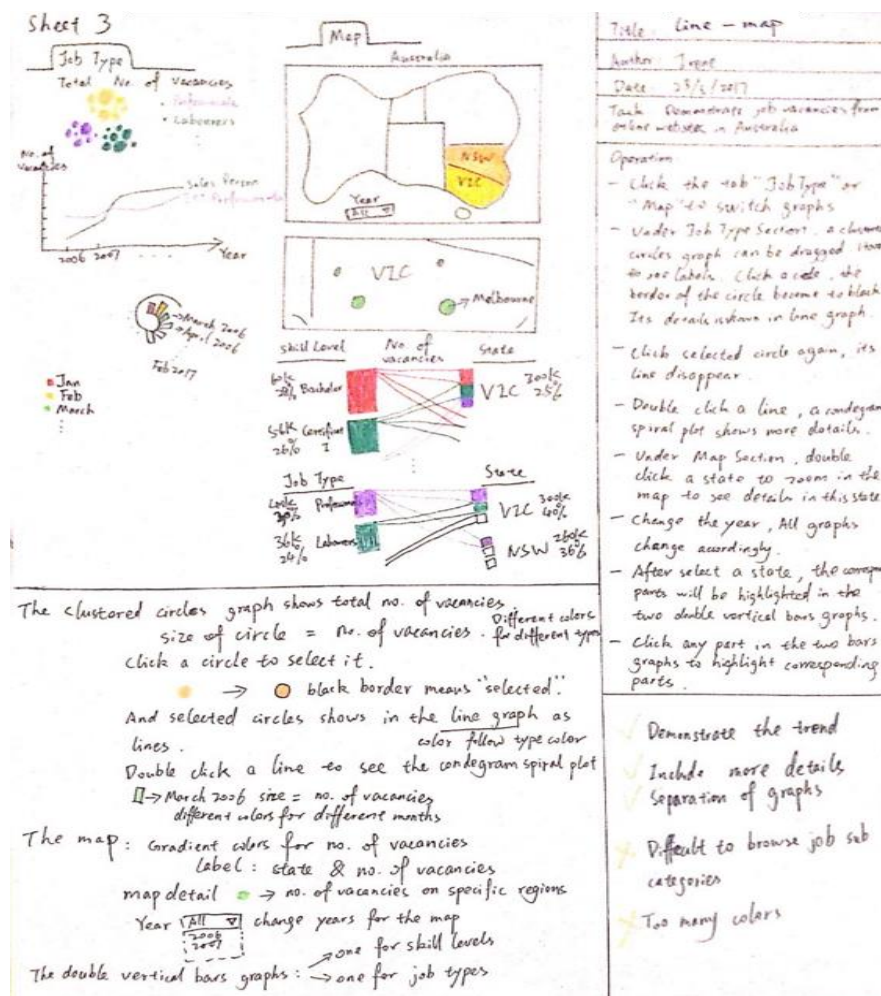 Sheet 3
Job Type
Total No. of vacancies
Professionals
Labourers
No. of
vacancies
Sales Person
Professionals
2006 2007 ....
Year
March 2006
April 2006
Feb 2017
Jan
Feb
March
Map
Australia
NSW
VIC
Year
All
VIC
Melbourne
Skill Level
No. of
vacancies
State
Bachelor
VIC
300k
25%
56k
26%
Certificate
I
Job Type
State
Professionals
VIC
300k
40%
36k
24%
Labourers
NSW
260k
36%
Title: Line - map
Author: Irene
Date:
Task: Demonstrate job vacancies from
online websites in Australia
Operation
- Click the tab "Job Type" or
"Map" to switch graphs
- Under Job Type Section, a clustered
circles graph can be dragged
to see labels. Click a circle, the
border of the circle become to black
Its details is shown in line graph.
- Click selected circle again, its
line disappear.
- Double click a line, a condegram
spiral plot shows more details.
- Under Map Section, double
click a state to zoom in the
map to see details in this state
- Change the year, All graphs
change accordingly.
- After select a state, the
parts will be highlighted in the
two double vertical bars graphs.
- Click any part in the two bars
graphs to highlight corresponding
parts.
The clustored circles graph shows total no. of vacancies.
size of circle = no. of vacancies. Different colors
for different types
Click a circle to select it.
→ black border means "selected".
And selected circles shows in the line graph as
lines.
color follow type color
Double click a line to see the condegram spiral plot
→ March 2006 size = no. of vacancies
different colors for different months
The map: Gradient colors for no. of vacancies
Label: state & no. of vacancies
map detail → no. of vacancies on specific regions
Year All change years for the map
2006
2007
The double vertical bars graphs: → one for skill levels
→ one for job types
Demonstrate the trend
Include more details
Separation of graphs
Difficult to browse job sub
categories
Too many colors